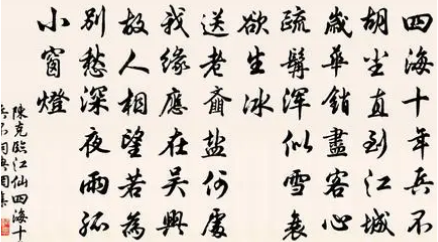 四海十年兵不
胡塵直到江城
歲華銷盡客心
疏髯渾似雪衰
欲生冰
送老齏鹽何處
我緣應在吳興
故人相望若為
別愁深夜雨孤
小窗燈
陳克臨江仙四海十
兵不